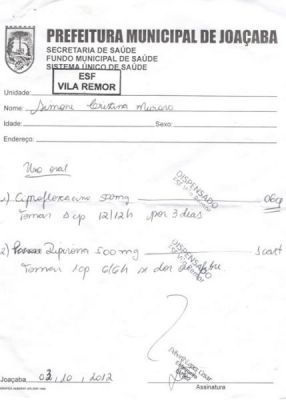 PREFEITURA MUNICIPAL DE JOAÇABA
SECRETARIA DE SAÚDE
FUNDO MUNICIPAL DE SAÚDE
SISTEMA ÚNICO DE SAÚDE
ESF
VILA REMOR
Unidade:
Nome: Simone Cristina
Idade: Sexo:
Endereço:
Uso oral
1) Ciprofloxacino 500mg 06cp
Tomar 1cp 12/12h por 3 dias
DISPENSADO
2) Dipirona 500mg 1 cart
Tomar 1cp 6/6h se dor febre
DISPENSADO
Joaçaba 03, 10, 2012
Assinatura